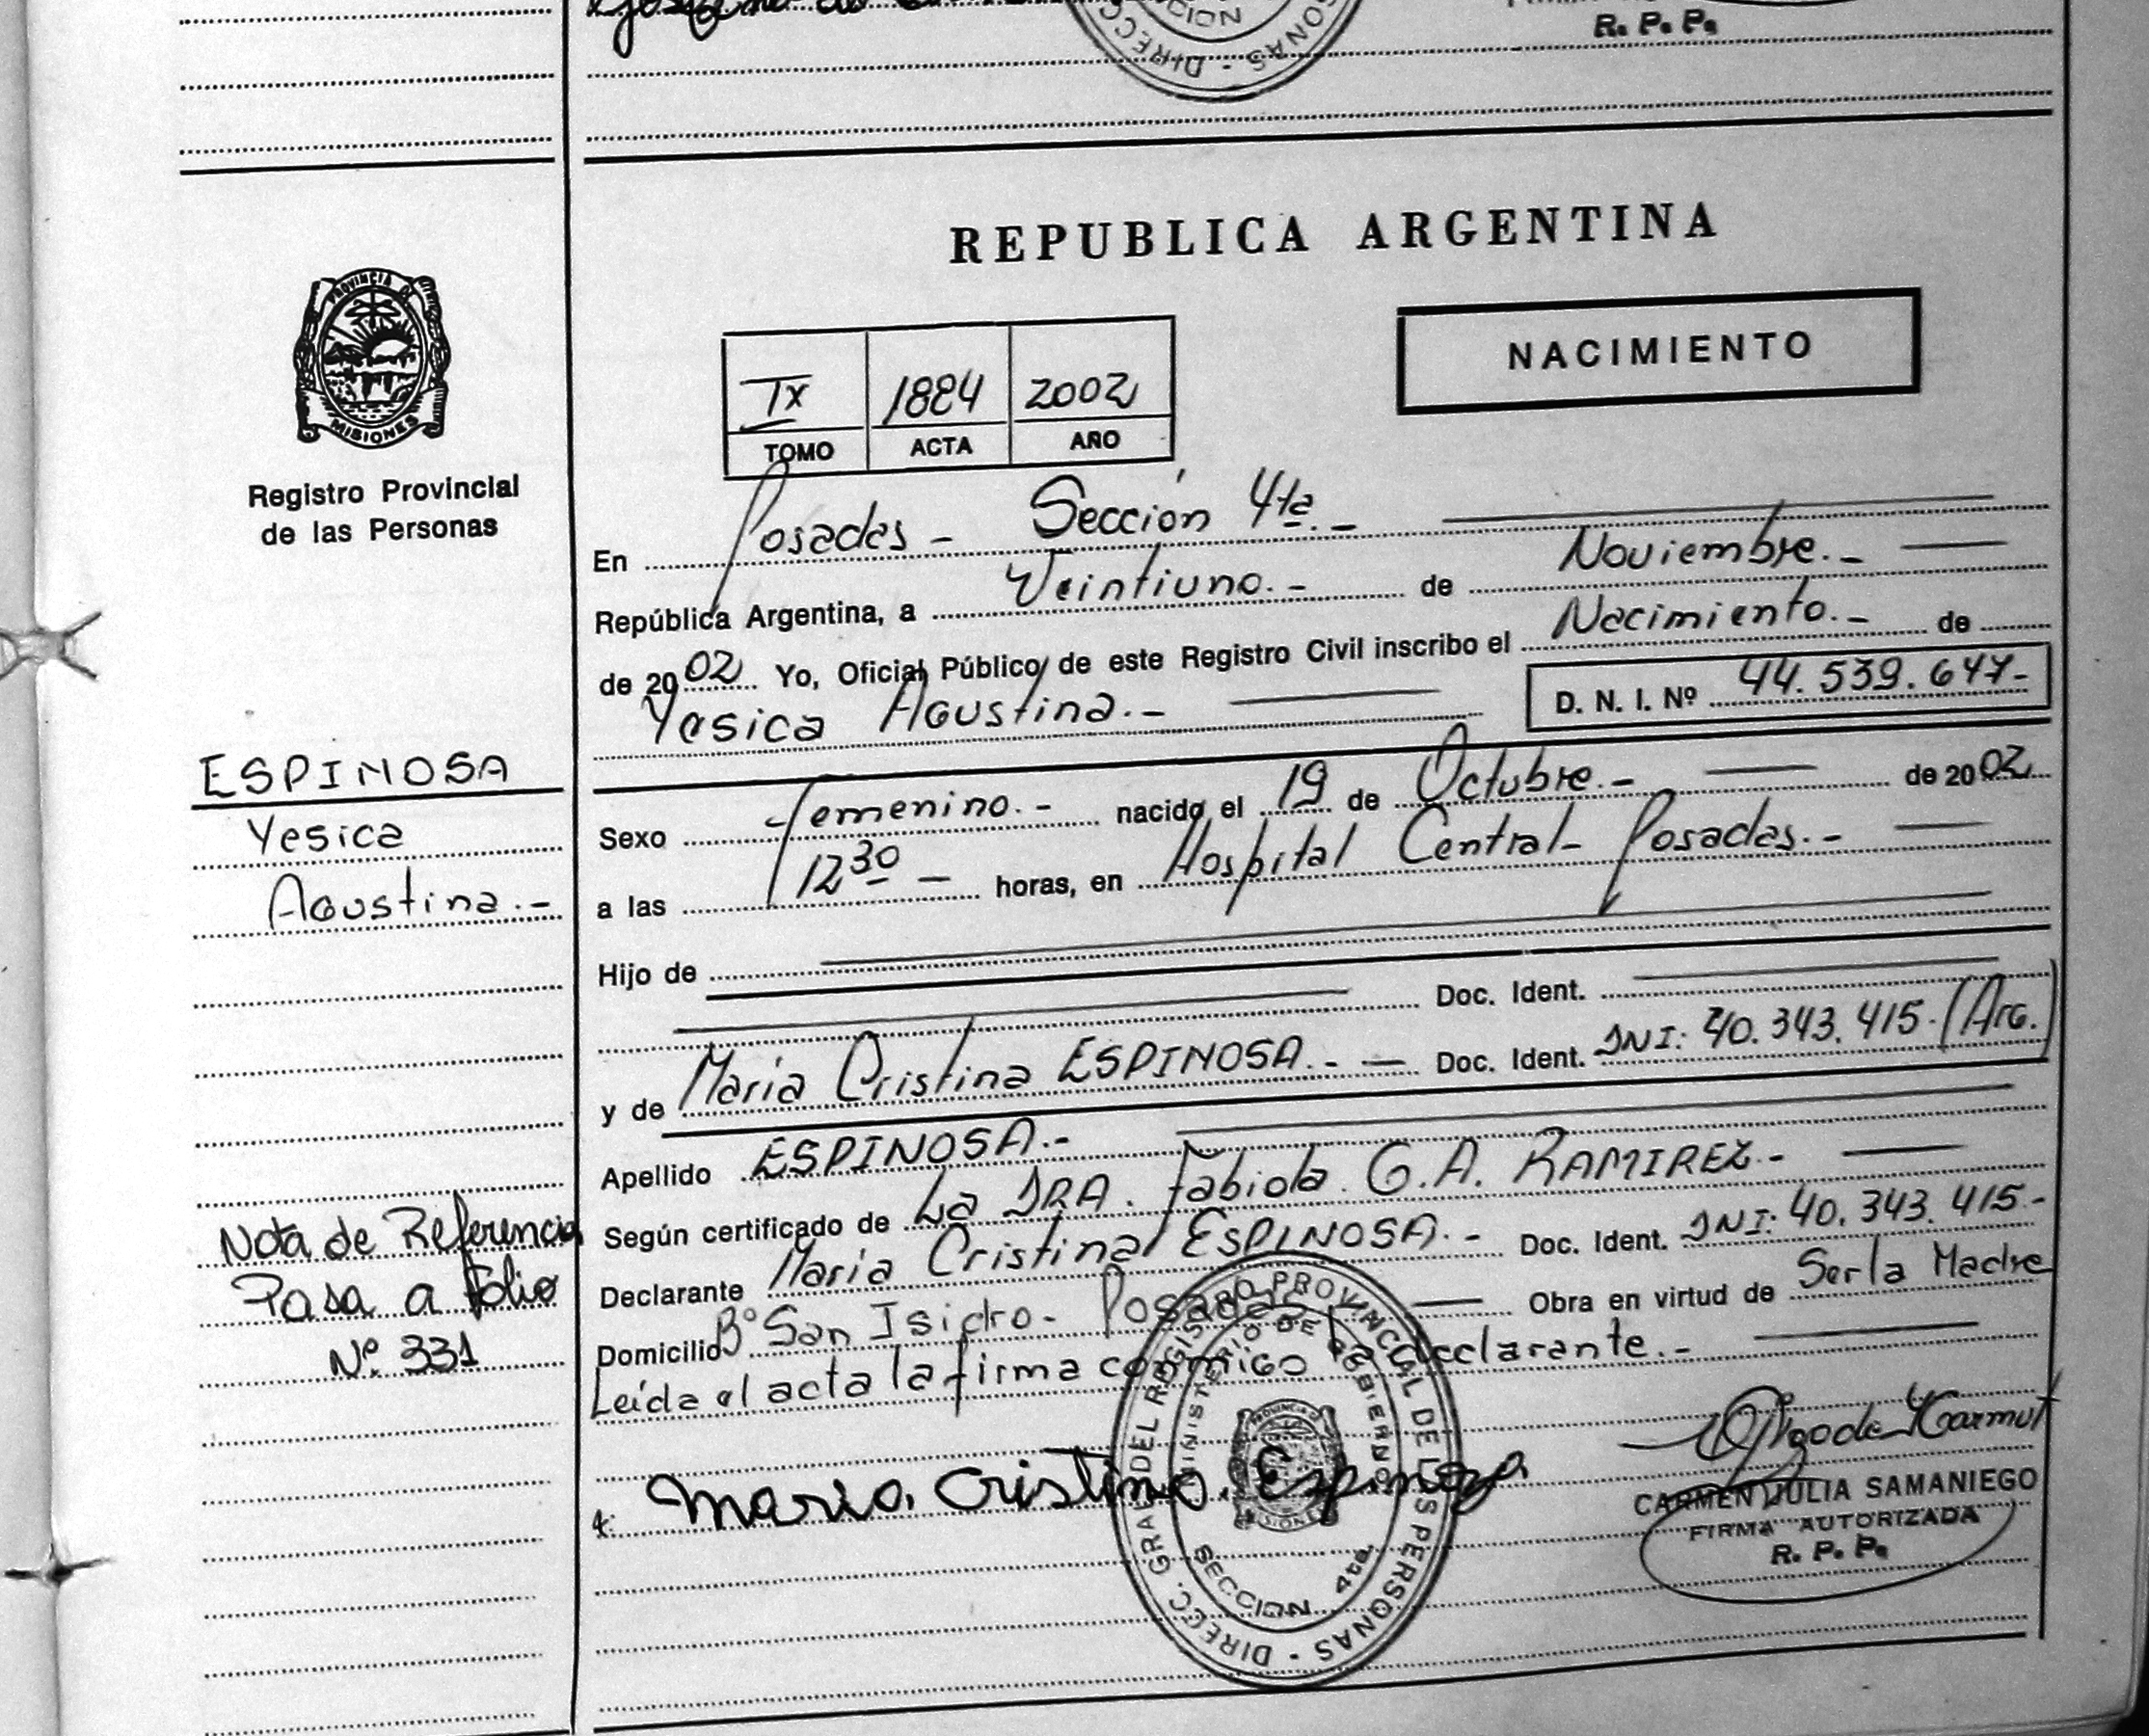 R. P. P.
REPUBLICA ARGENTINA
NACIMIENTO
PROVINCIA DE
MISIONES
Registro Provincial
de las Personas
IX 1884 2002
TOMO ACTA AÑO
En Posadas - Sección 4ta. -
República Argentina, a Veintiuno. - de Noviembre. -
de 2002 Yo, Oficial Público de este Registro Civil inscribo el Nacimiento. - de
Yesica Agustina. - D. N. I. Nº 44.539.647-
ESPINOSA
Yesica
Agustina. -
Sexo femenino. - nacido el 19 de Octubre. - de 2002
a las 12 30 - horas, en Hospital Central - Posadas. -
Hijo de
Doc. Ident.
y de Maria Cristina ESPINOSA. - Doc. Ident. DNI: 40.343.415. (Arg.)
Apellido ESPINOSA. -
Según certificado de La DRA. Fabiola G.A. RAMIREZ. -
Declarante Maria Cristina ESPINOSA. - Doc. Ident. DNI: 40.343.415. -
Domicilio Bº San Isidro - Posadas Obra en virtud de Ser la Madre
Leída el acta la firma conmigo la declarante. -
Nota de Referencia
Pasa a folio
Nº 331
Maria Cristina Espinoza
CARMEN JULIA SAMANIEGO
FIRMA AUTORIZADA
R. P. P.
DIRECC. GRAL. DEL REGISTRO PROVINCIAL DE LAS PERSONAS -
MINISTERIO DE GOBIERNO
SECCION 4ta.